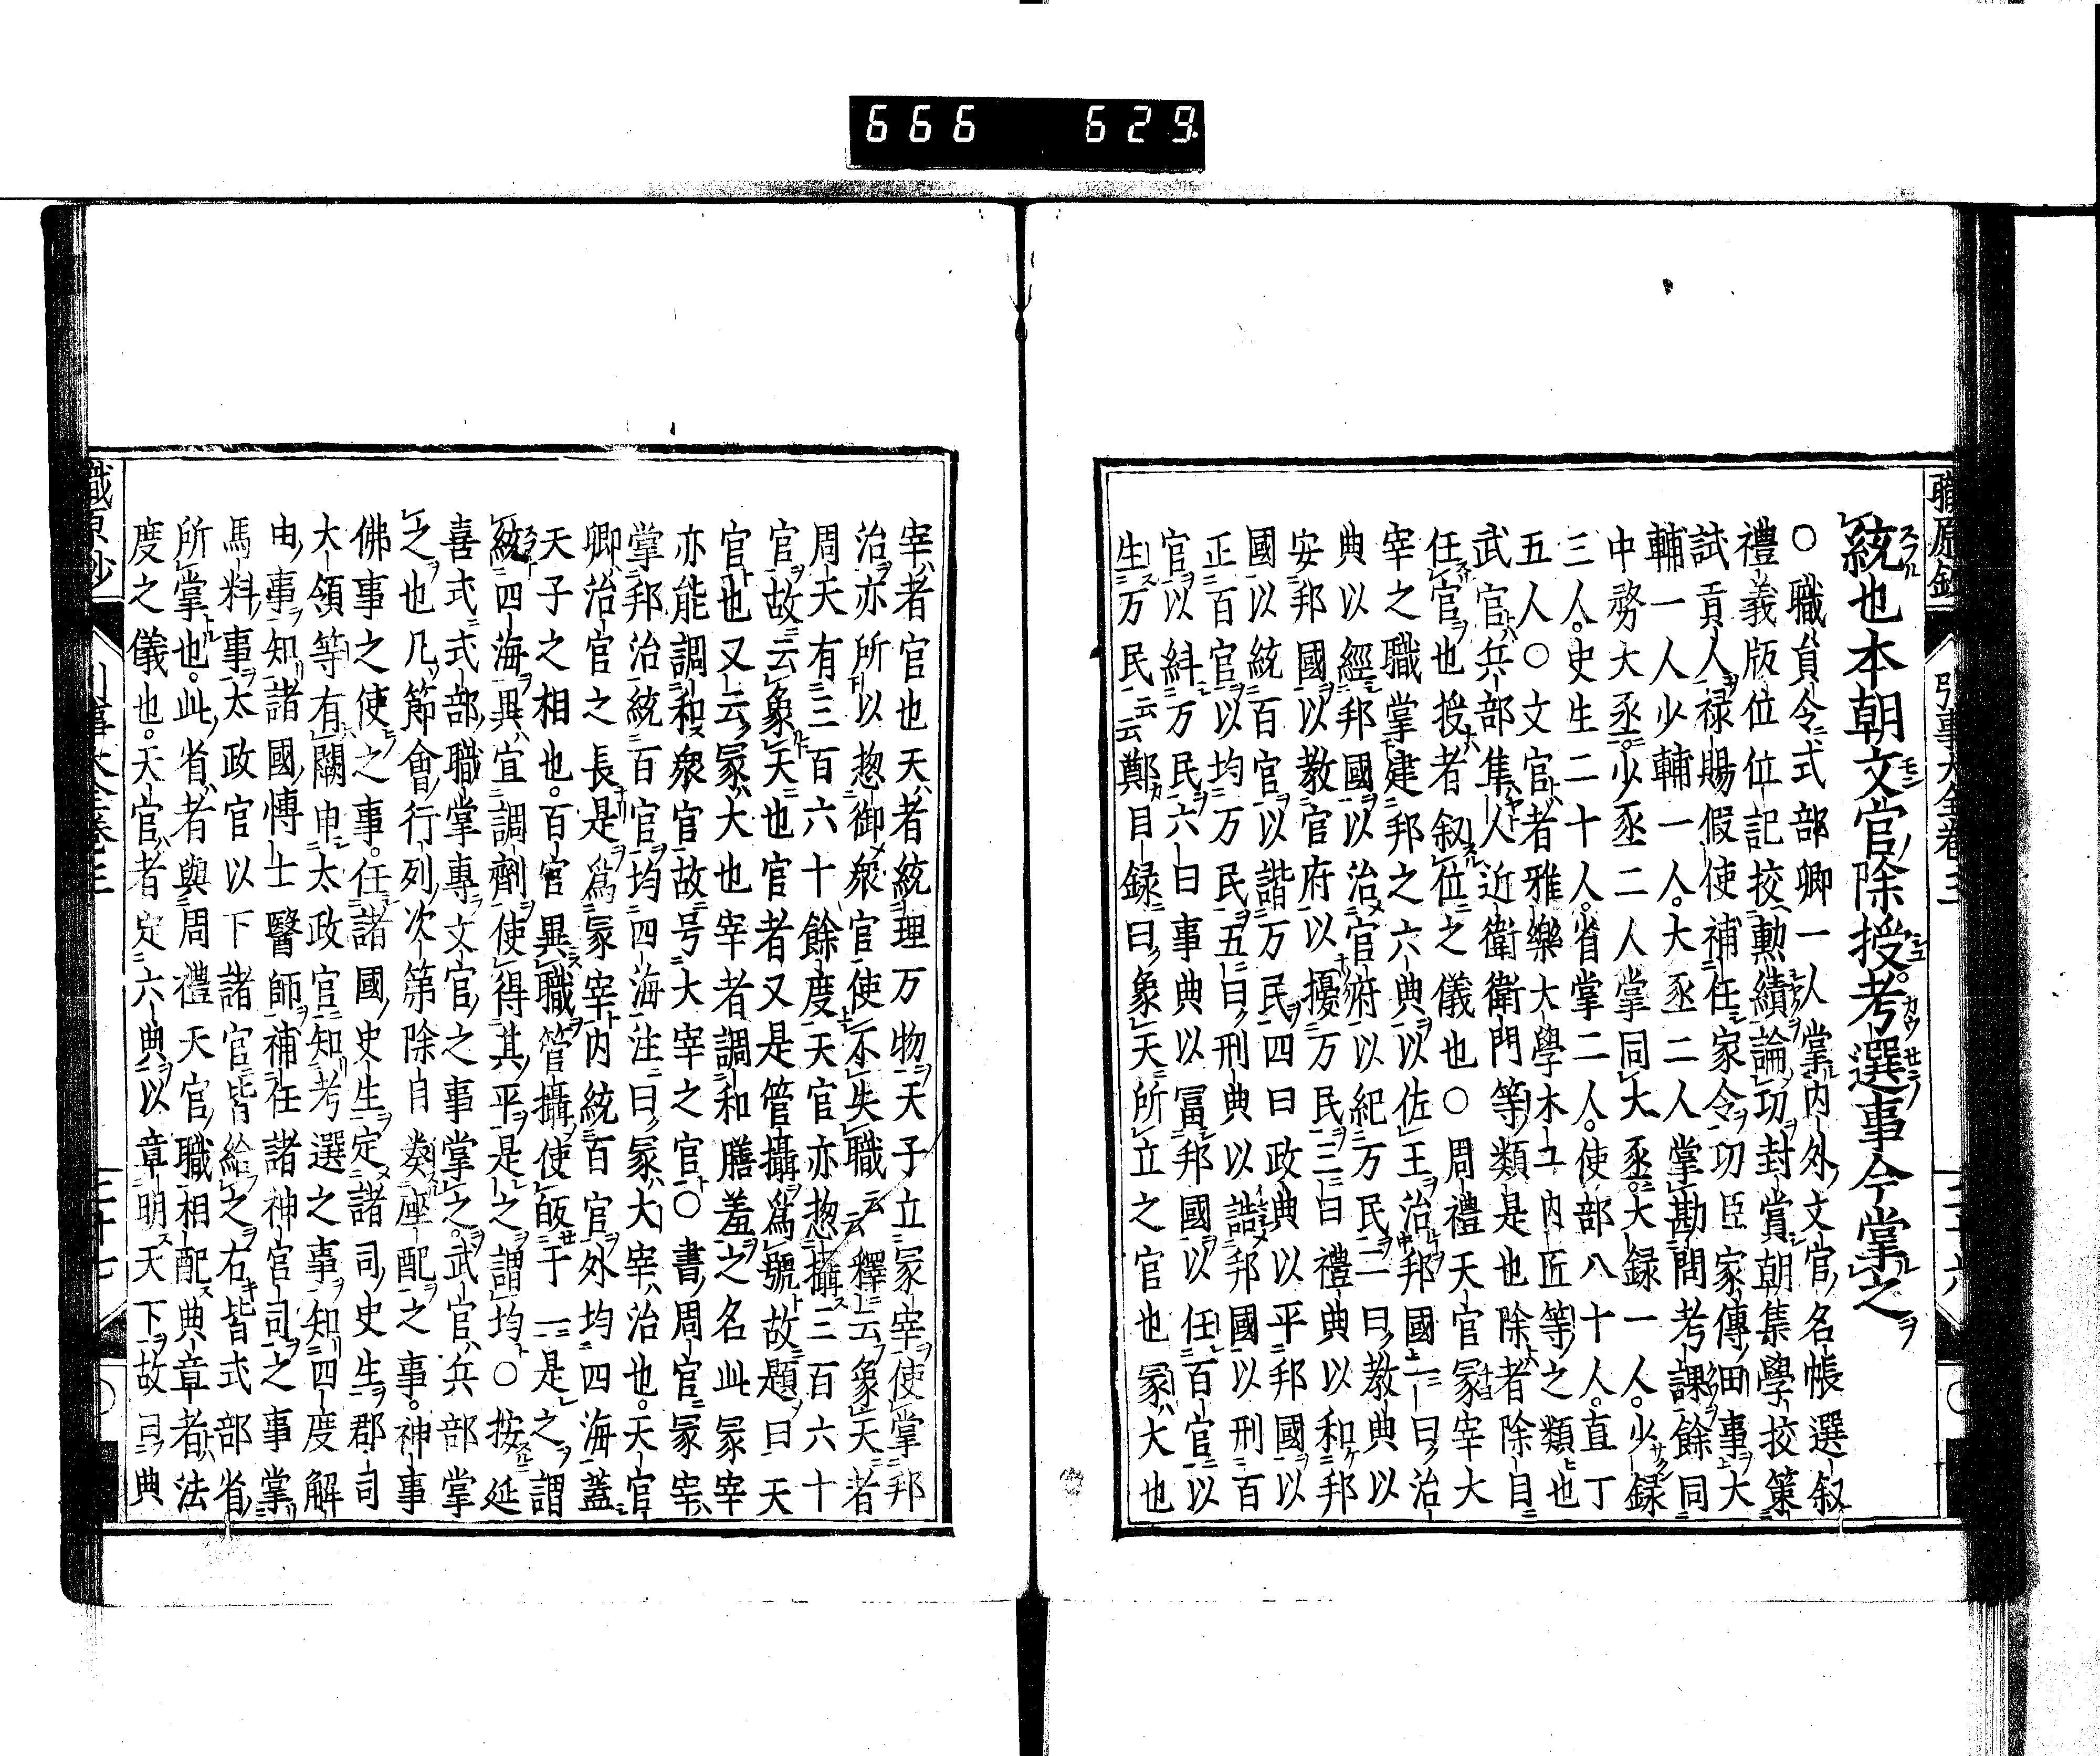 666 629
職原鈔 引事大全卷三 三十六
統也本朝文官除授考選事今掌之
○職員令式部卿一人掌内外文官名帳選叙
禮義版位位記挍勲績論功封賞朝集學挍策
試貢人禄賜假使補任家令功臣家傳田事大
輔一人少輔一人大丞二人掌勘問考課餘同
中務大丞少丞二人掌同大丞大録一人少録
三人史生二十人省掌二人使部八十人直丁
五人○文官者雅樂大學木工内匠等之類也
武官兵部隼人近衛衛門等類是也除者除自
任官也授者叙位之儀也○周禮天官冢宰大
宰之職掌建邦之六典以佐王治邦國一曰治
典以經邦國以治官府以紀万民二曰教典以
安邦國以教官府以擾万民三曰禮典以和邦
國以統百官以諧万民四曰政典以平邦國以
正百官以均万民五曰刑典以詰邦國以刑百
官以糾万民六曰事典以冨邦國以任百官以
生万民云云鄭目録曰象天所立之官也冢大也
宰者官也天者統理万物天子立冢宰使掌邦
治亦所以惣御衆官使不失職云云釋云象天者
周天有三百六十餘度天官亦惣攝三百六十
官故云象天也官者又是管攝爲號故題曰天
官也又云冢大也宰者調和膳羞之名此冢宰
亦能調和衆官故号大宰之官○書周官冢宰
掌邦治統百官均四海注曰冢大宰治也天官
卿治官之長是爲冢宰内統百官外均四海蓋
天子之相也百官異職管攝使皈于一是之謂
統四海異宜調劑使得其平是之謂均○按延
喜式式部職掌專文官之事掌之武官兵部掌
之也凡節會行列次第除自奏座配之事神事
佛事之使之事任諸國史生定諸司史生郡司
大領等有闕申太政官知考選之事知四度解
由事知諸國博士醫師補任諸神官司之事掌
馬料事太政官以下諸官皆給之右皆式部省
所掌也此省者與周禮天官職相配典章者法
度之儀也天官者定六典以章明天下故曰典
職原鈔